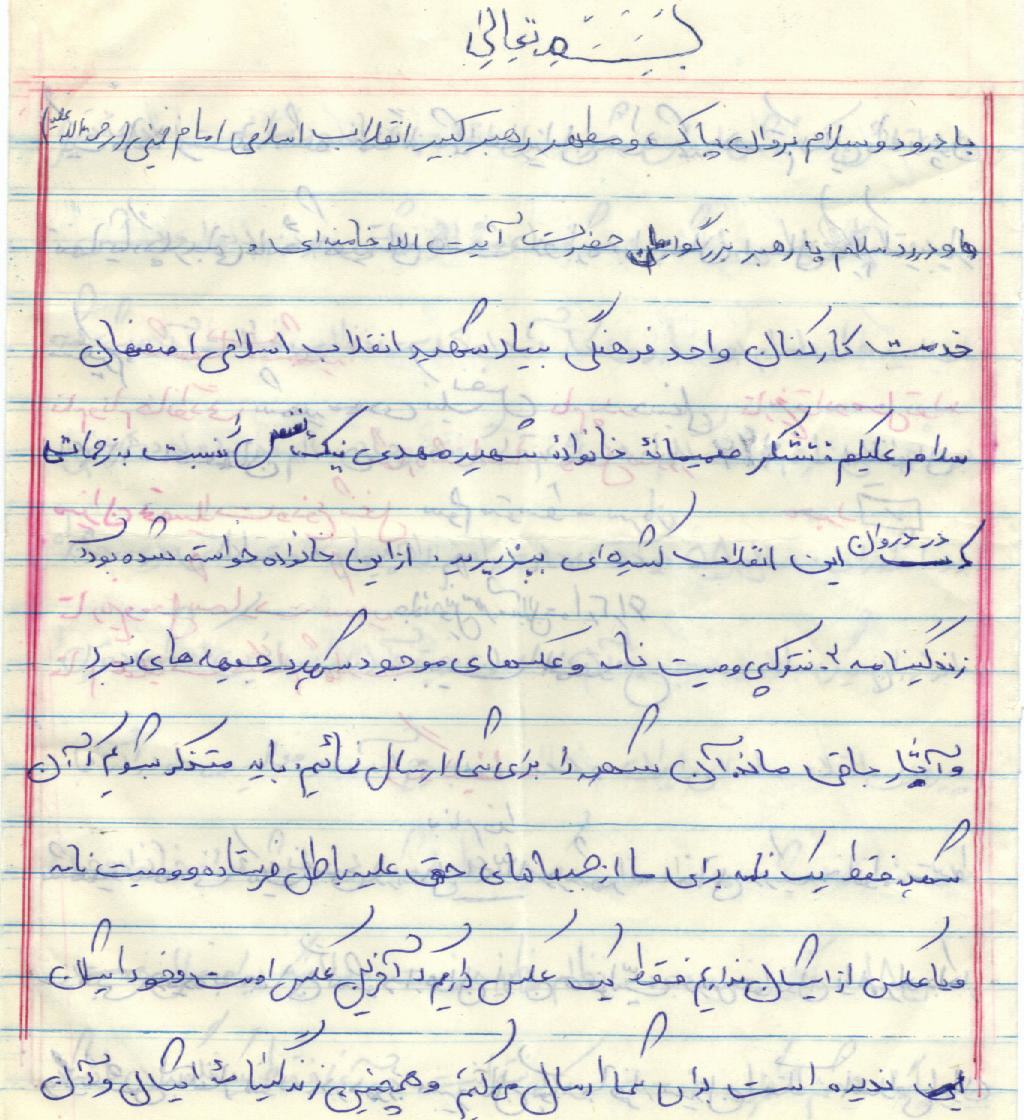 بسمه تعالی
با درود و سلام بروان پاک و مطهر رهبر کبیر انقلاب اسلامی امام خمینی (رحمة الله علیه)
و درود سلام به رهبر بزرگوارمان حضرت آیت الله خامنه ای
خدمت کارکنان واحد فرهنگی بنیاد شهید انقلاب اسلامی اصفهان
سلام علیکم: تشکر صمیمانهٔ خانوادهٔ شهید مهدی نیک نفس نسبت به زحمات
که در دوران این انقلاب کشیده ای بپذیرید. از این خانواده خواسته شده بود که
زندگینامه ۲. فتوکپی وصیت نامه و عکسهای موجود شهید در جبهه های نبرد
و آثار باقی مانده آن شهید را برای شما ارسال نمائیم، باید متذکر شویم که آن
شهید فقط یک نامه برای ما از جبهه های حق علیه باطل فرستاده و وصیت نامه
و یا عکس از ایشان نداریم فقط یک عکس داریم که آخرین عکس اوست و خود ایشان
ندیده است برای شما ارسال می کنیم و همچنین زندگینامهٔ ایشان و آن